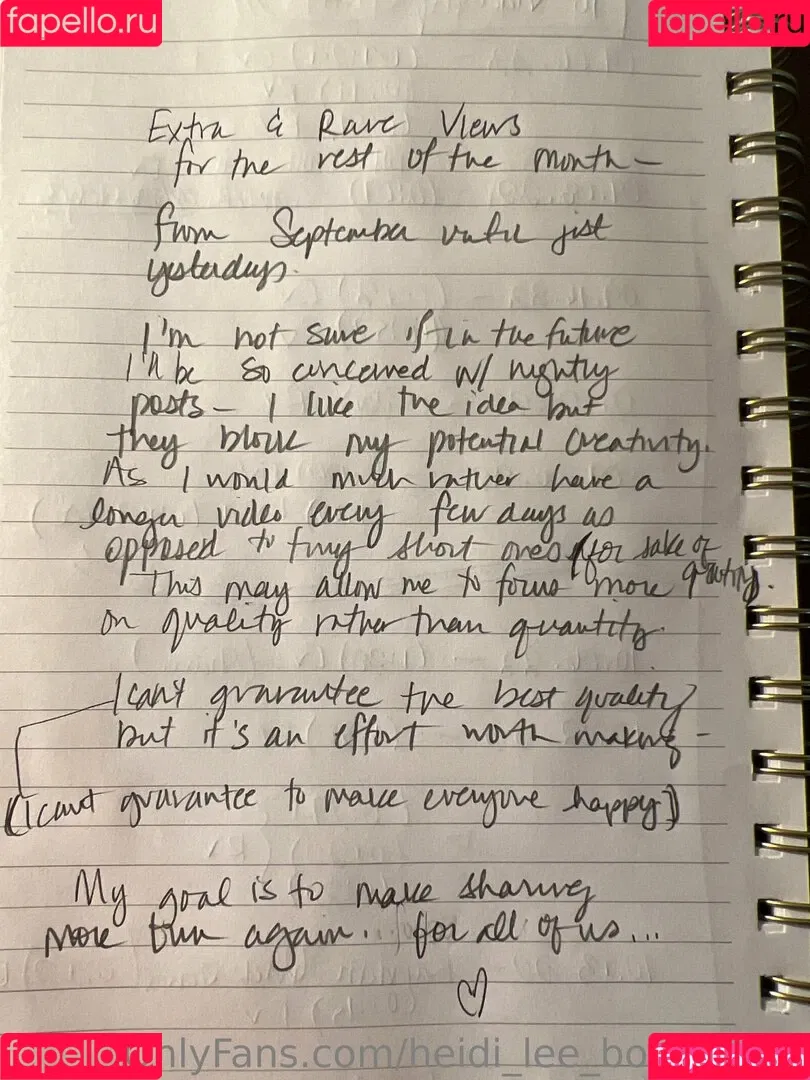 fapello.ru fapello.ru
Extra & Rare Views
for the rest of the month –
from September until just
yesterday.
I'm not sure if in the future
I'll be so concerned w/ nightly
posts – I like the idea but
they block my potential creativity.
As I would much rather have a
longer video every few days as
opposed to tiny short ones (for sake of
quantity).
This may allow me to focus more
on quality rather than quantity.
I can't guarantee the best quality
but it's an effort worth making –
(I can't guarantee to make everyone happy)
My goal is to make sharing
more fun again.. for all of us...
fapello.ru nlyFans.com/heidi_lee_bo fapello.ru